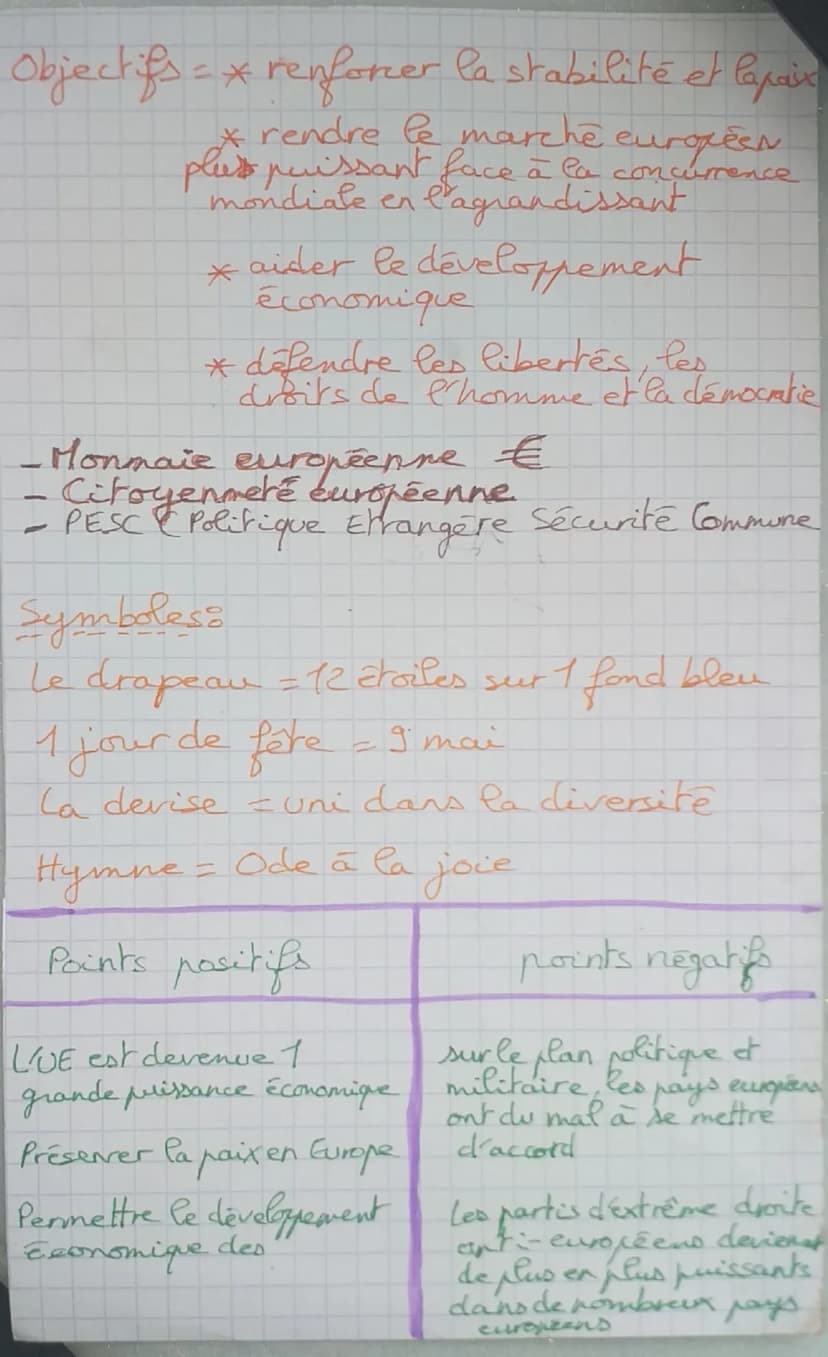 Objectifs = * renforcer la stabilité et la paix
* rendre le marché européen
plus puissant face à la concurrence
mondiale en l'agrandissant
* aider le développement
économique
* défendre les libertés, les
droits de l'homme et la démocratie
- Monnaie européenne €
- Citoyenneté européenne
- PESC ( Politique Etrangère Sécurité Commune
Symboles:
Le drapeau = 12 étoiles sur 1 fond bleu
1 jour de fête = 9 mai
La devise = uni dans la diversité
Hymne = Ode à la joie
Points positifs
L'UE est devenue 1
grande puissance économique
Préserver la paix en Europe
Permettre le développement
Economique des
points négatifs
sur le plan politique et
militaire, les pays européens
ont du mal à se mettre
d'accord
Les partis d'extrême droite
anti-européens deviennent
de plus en plus puissants
dans de nombreux pays
européens